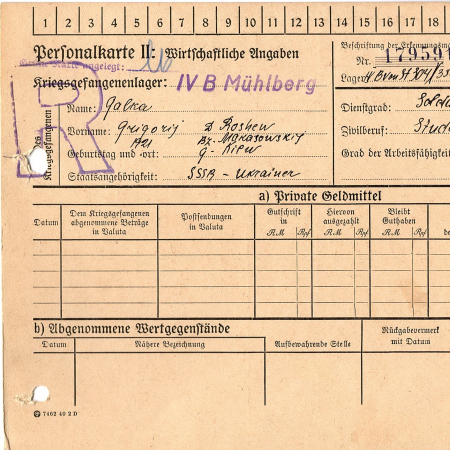 1 2 3 4 5 6 7 8 9 10 11 12 13 14 15 16 17 18
Personalkarte II: Wirtschaftliche Angaben
Keine Karte angelegt:
Kriegsgefangenenlager: IV B Mühlberg
Beschriftung der Erkennungsma
Nr. 179591
Lager:
R
Des Kriegsgefangenen
Name: Galka
Vorname: Grigorij D Roshew
1921 Bz. Makasowskij
Geburtstag und -ort: G - Kiew
Staatsangehörigkeit: SSSR - Ukrainer
Dienstgrad: Solda
Zivilberuf: Stud
Grad der Arbeitsfähigkeit
a) Private Geldmittel
Datum
Dem Kriegsgefangenen abgenommene Beträge in Valuta
Postsendungen in Valuta
Gutschrift in
RM Rpf
Hiervon ausgezahlt
RM Rpf
Bleibt Guthaben
RM Rpf
be
b) Abgenommene Wertgegenstände
Datum Nähere Bezeichnung Aufbewahrende Stelle
Rückgabevermerk
mit Datum
7462 40 2 D